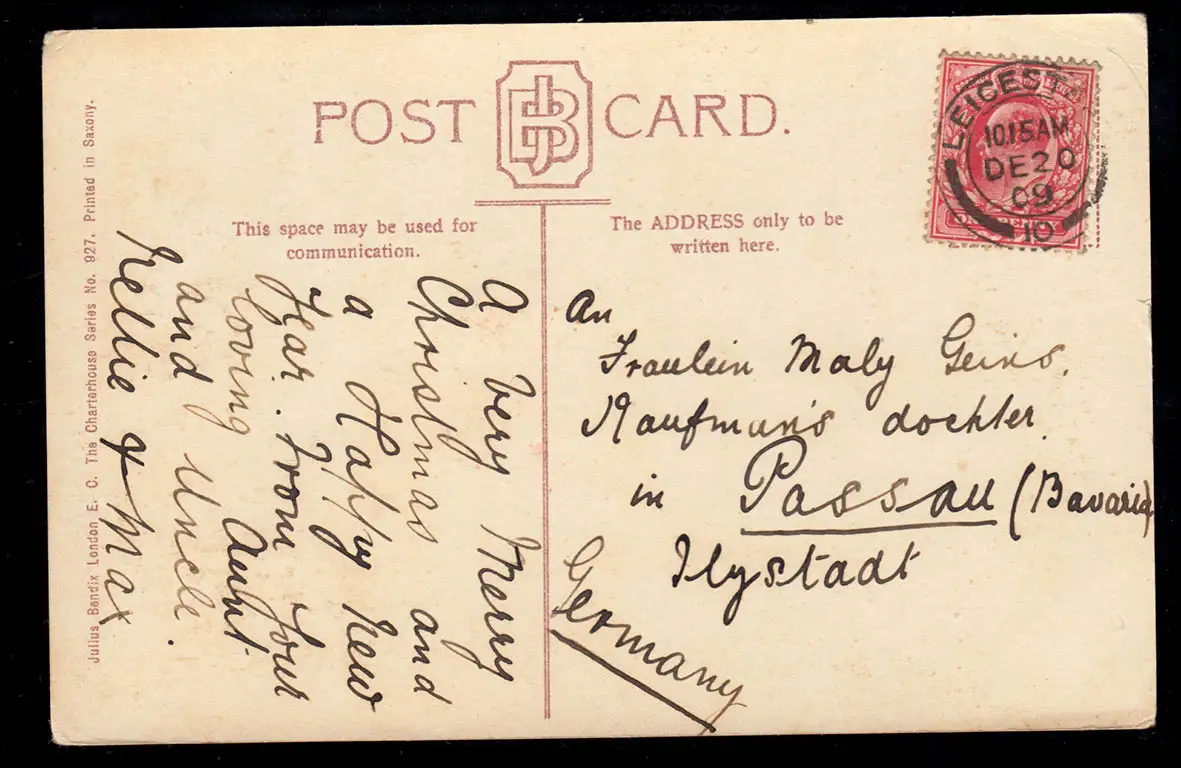 POST CARD.
JBB
This space may be used for
communication.
The ADDRESS only to be
written here.
LEICEST
10 15 AM
DE 20
09
10
A Very Merry
Christmas and
a Happy New
Year. From your
loving Aunt
and Uncle.
Nellie & Max
An
Fraulein Maly Geins.
Kaufmans dochter
in Passau (Bavaria)
Ilystadt
Germany
Julius Bendix London E. C. The Charterhouse Series No. 927. Printed in Saxony.